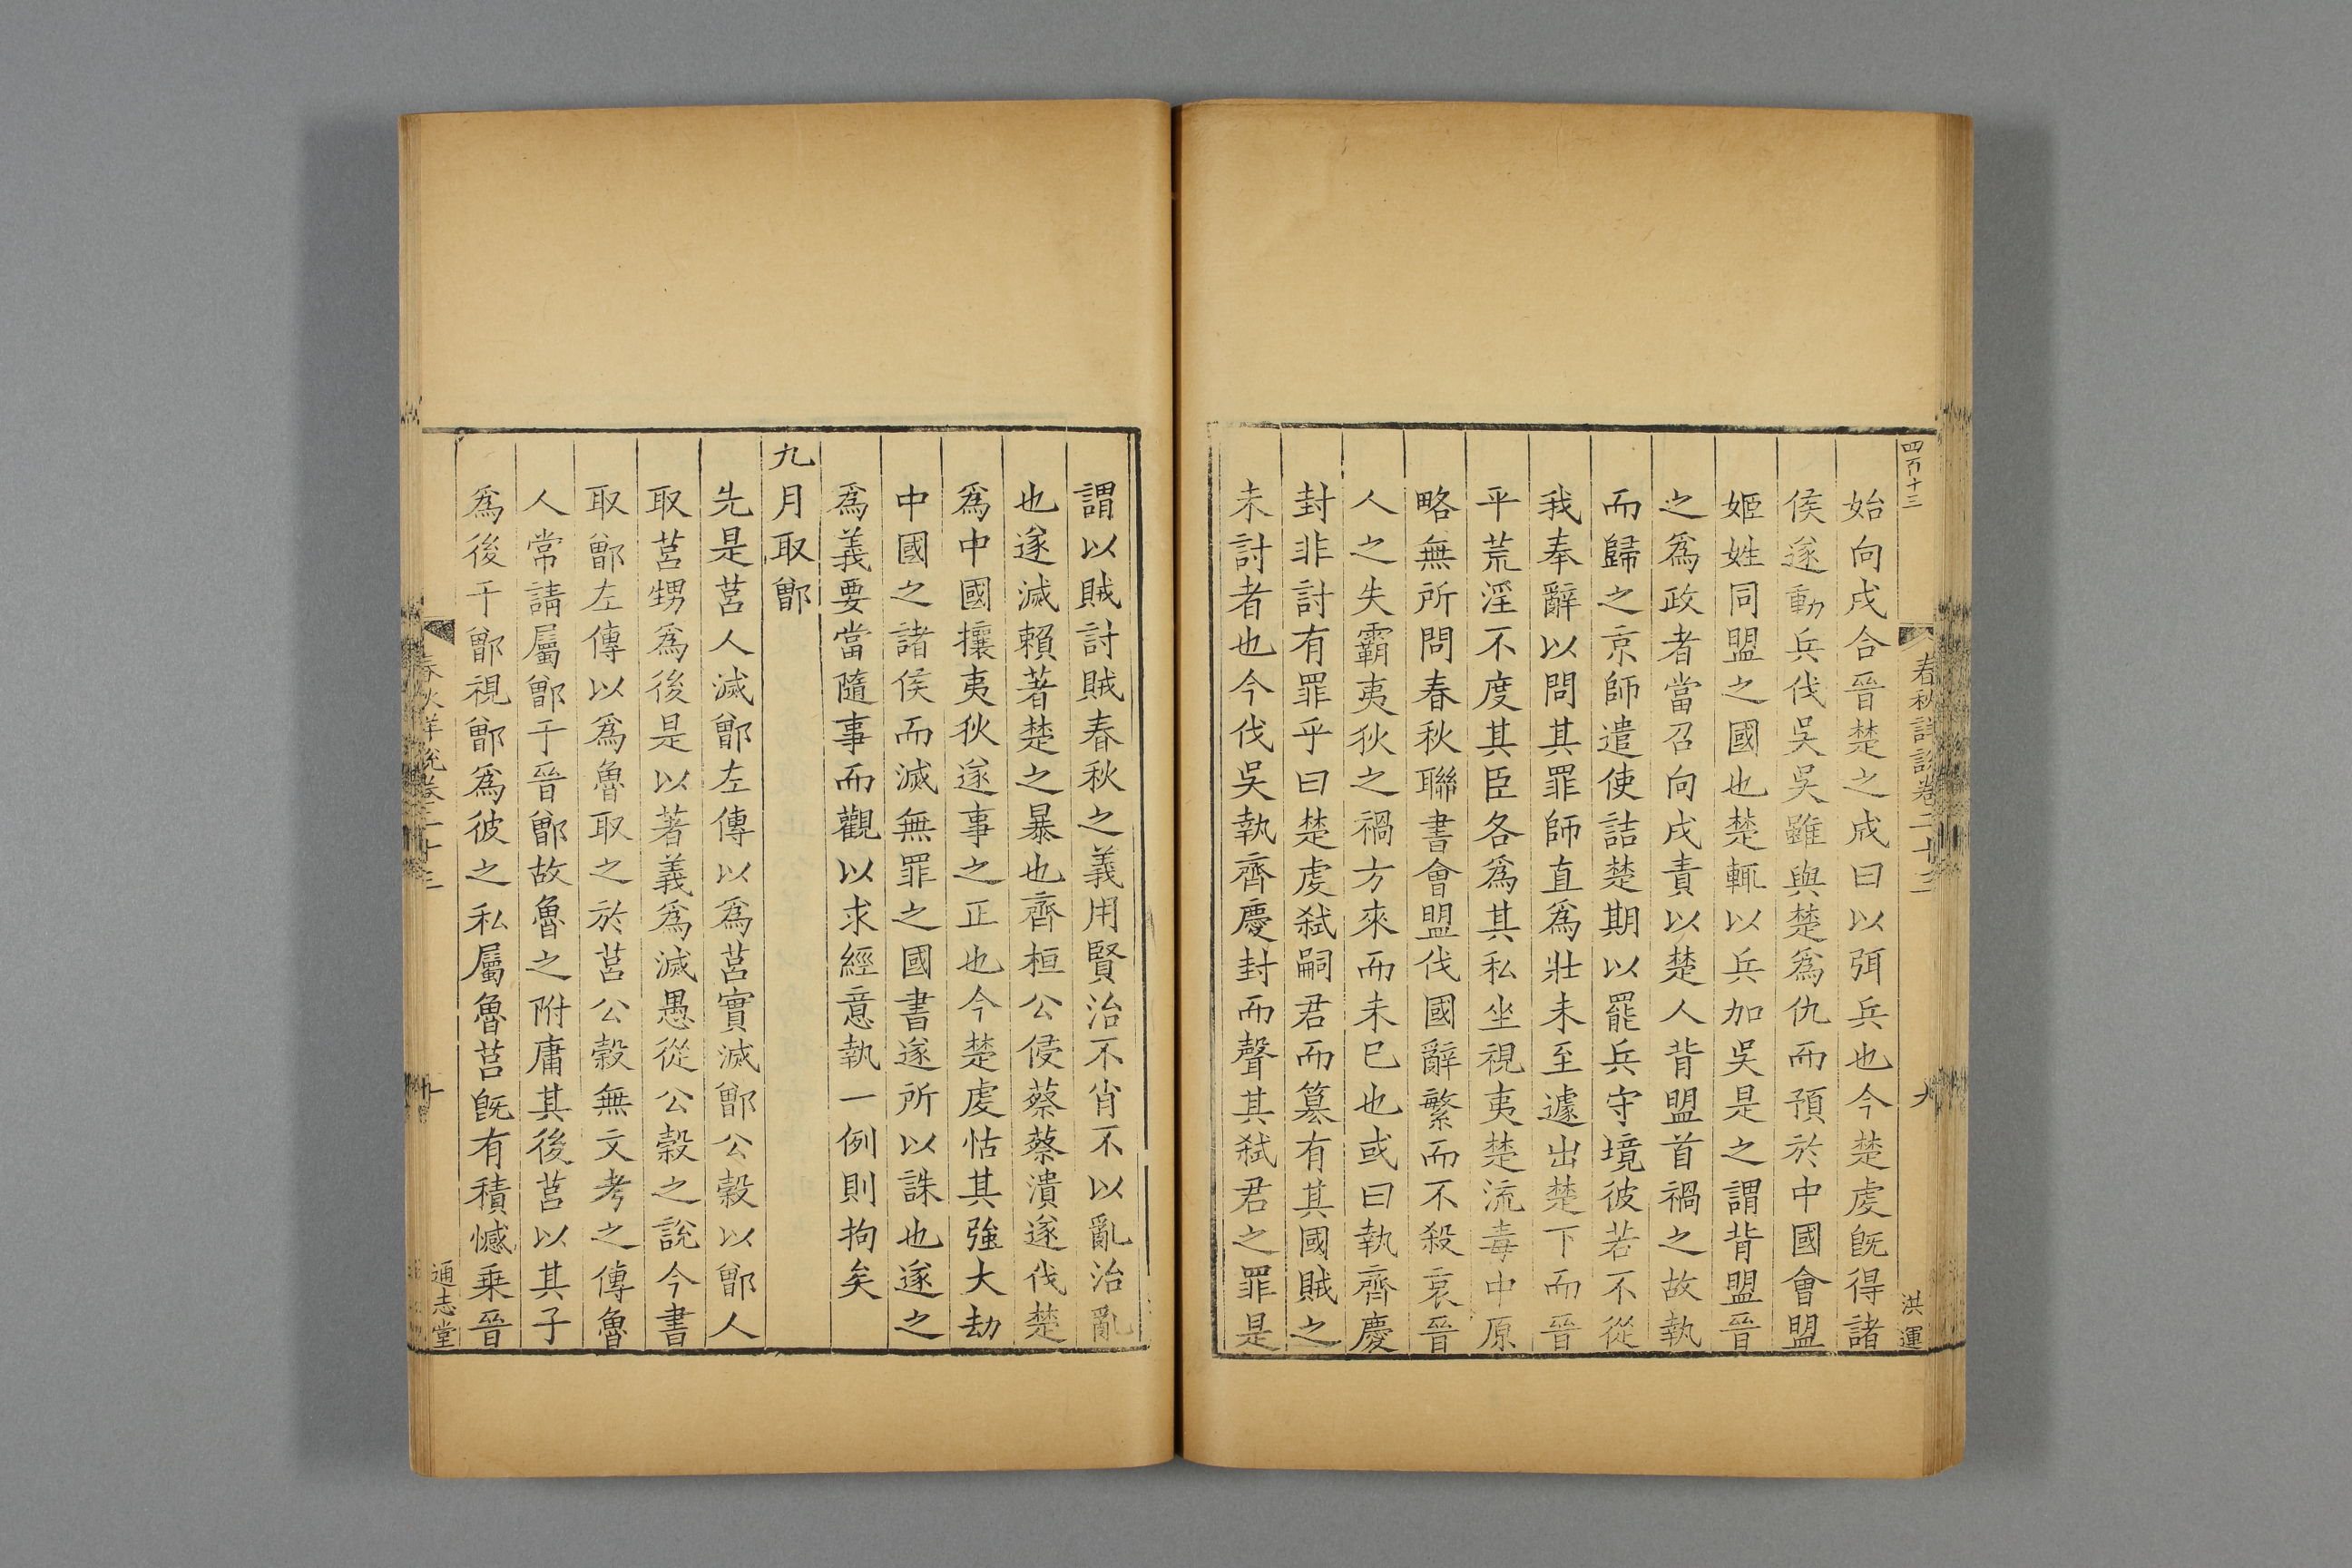 四百十三
春秋詳說卷二十三
九
洪運
始向戌合晉楚之成曰以弭兵也今楚虔旣得諸
侯遂動兵伐吳吳雖與楚爲仇而預於中國會盟
姬姓同盟之國也楚輒以兵加吳是之謂背盟晉
之爲政者當召向戌責以楚人背盟首禍之故執
而歸之京師遣使詰楚期以罷兵守境彼若不從
我奉辭以問其罪師直爲壯未至遽出楚下而晉
平荒淫不度其臣各爲其私坐視夷楚流毒中原
略無所問春秋聯書會盟伐國辭繁而不殺哀晉
人之失霸夷狄之禍方來而未已也或曰執齊慶
封非討有罪乎曰楚虔弑嗣君而篡有其國賊之
未討者也今伐吳執齊慶封而聲其弑君之罪是
謂以賊討賊春秋之義用賢治不肖不以亂治亂
也遂滅賴著楚之暴也齊桓公侵蔡蔡潰遂伐楚
爲中國攘夷狄遂事之正也今楚虔怙其強大劫
中國之諸侯而滅無罪之國書遂所以誅也遂之
爲義要當隨事而觀以求經意執一例則拘矣
九月取鄫
先是莒人滅鄫左傳以爲莒實滅鄫公穀以鄫人
取莒甥爲後是以著義爲滅愚從公穀之說今書
取鄫左傳以爲魯取之於莒公穀無文考之傳魯
人常請屬鄫于晉鄫故魯之附庸其後莒以其子
爲後于鄫視鄫爲彼之私屬魯莒旣有積憾乘晉
春秋詳說卷二十三
十
通志堂